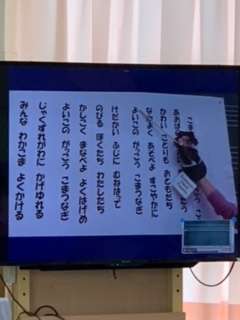 こま
あおぞ
かわい ことりも おともだち
なかよく あそべよ すこやかに
よいこの がっこう こまつなぎ
けだかい ふじに むねはって
のびる ぼくたち わたしたち
かしこく まなべよ よくはげめ
よいこの がっこう こまつなぎ
じゃくすれがわに かげゆれる
みんな わかこま よくかける